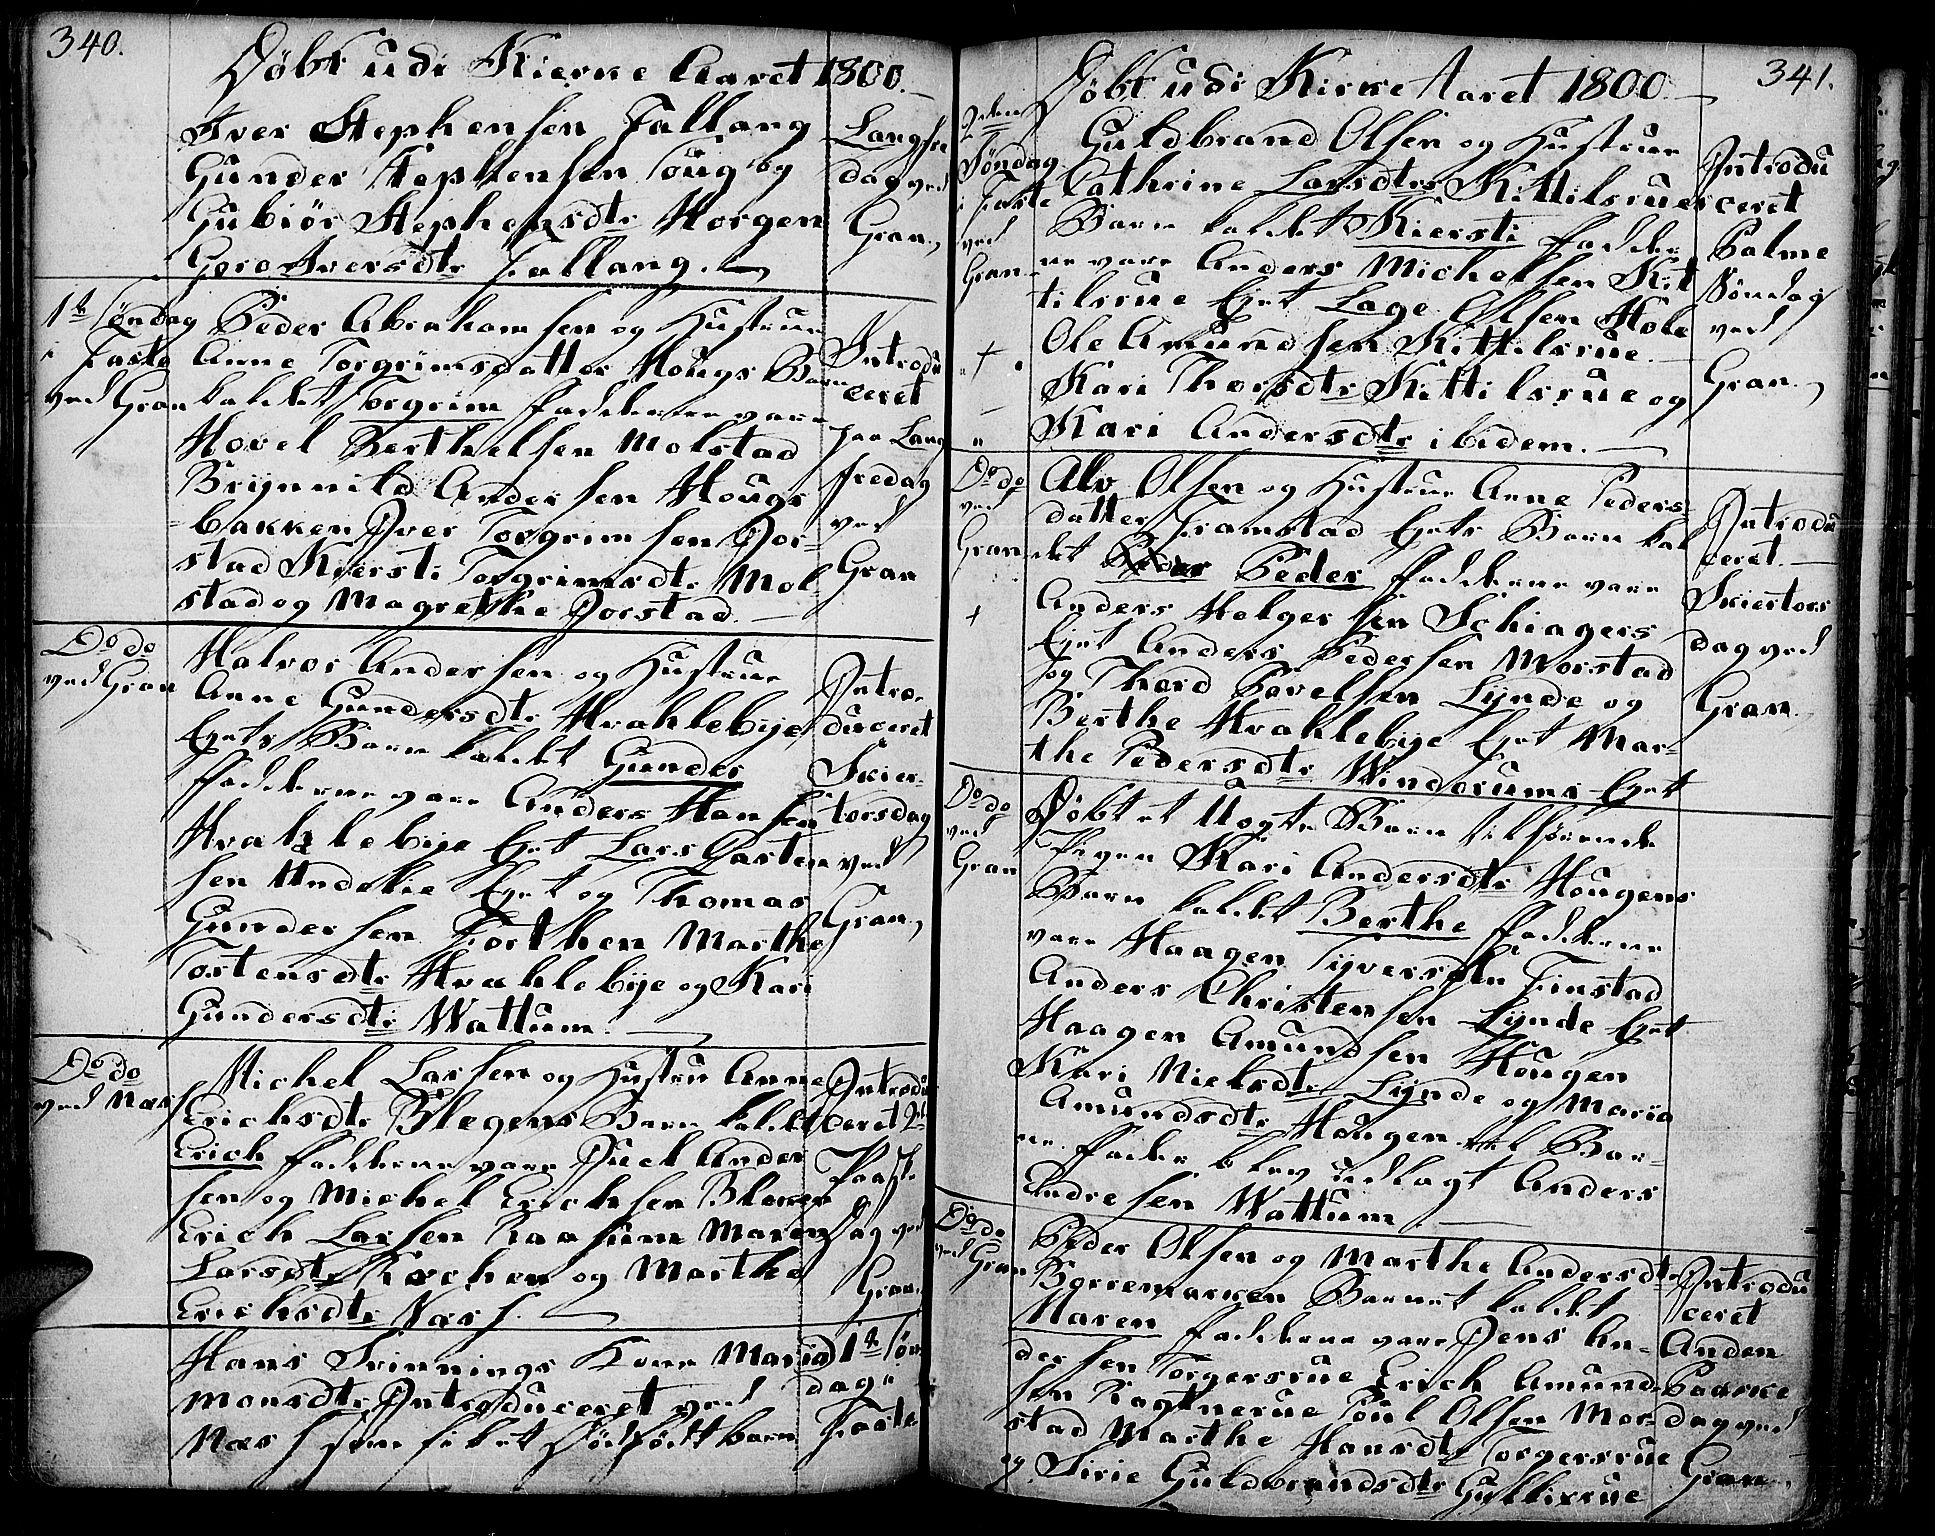 340.
Døbt udi Kierke Aaret 1800.
Iver Stephensen Fallang
Gunder Stephensen Toug og
Gubiør Stephensdtr Horgen
Goro Iversdtr Fallang.
Langfre
dag ved
Gran
1te Søndag
i Faste
ved Gran
Peder Abrahamsen og Hustrue
Anne Torgrimsdatter Hougs Barn
kaldet Torgrim Fadderne vare
Hovel Berthelsen Molstad
Brijnnild Andersen Hougs
bakken Iver Torgrimsen Jor-
stad Kiersti Torgrimsdtr Mol-
stad og Magrethe Jorstad.
Introdu
ceret
paa Lang
fredag
ved
Gran
Do do
ved Gran
Halvor Andersen og Hustrue
Anne Gundersdtr Hvahlebije
Ejets Barn kaldet Gunder
Fadderne vare Anders Hansen
Hvahlebije Ejet Lars Gasten
sen Undelie Ejet og Thomas
Gundersen Forthen Marthe
Tostensdtr Hvahlebije og Kari
Gundersdtr Wattum.
Intro-
duceret
Skier-
torsdag
ved
Gran
Do do
ved Næs
Michel Larsen og Hustru Anne
Erichsdtr Blegens Barn kaldet
Erich Fadderne vare Juel Ander
sen og Michel Erichsen Blegen
Erich Larsen Raasum Maren
Larsdtr Kochen og Marthe
Erichsdtr Næs.
Introdu
ceret 2de
Paaske
Dag ved
Gran
Hans Skinnings Kone Maria
Monsdtr Introduceret ved
Næs som fik et Dødfødt barn
1te Søn
dag i
Faste
341.
Døbt udi Kirke Aaret 1800
2den
Søndag
i Faste
ved
Gran
Guldbrand Olsen og Hustrue
Cathrine Larsdtr Kittilsrues
Barn kaldet Kiersti Fadder
ne vare Anders Michelsen Kit
tilsrue Ejet Lage Olsen Hole
Ole Amundsen Kittilsrue
Kari Thorsdtr Kittilsrue og
Kari Andersdtr ibidem.
Introdu
ceret
Palme
Søndag
ved
Gran
Do do
ved
Gran
Alv Olsen og Hustrue Anne Peders-
datter Framstad Ejets Barn kal
det Peder Fadderne vare
Anders Helgersen Schiagers
Ejet Anders Pedersen Morstad
og Thord Povelsen Lynde og
Berthe Hvahlebije Ejet Mar-
the Pedersdtr Windorums Ejet
Introdu
ceret
Skiertors
dag ved
Gran
Do do
ved
Gran
Døbt et Uægte Barn tilhørende
Pigen Kari Andersdtr Hougens
Barn kaldet Berthe Fadderne
vare Haagen Sijversen Finstad
Anders Christensen Lynde Ejet
Haagen Amundsen Hougen
Kari Nielsdtr Lynde og Maria
Amundsdtr Hougen til Bar-
ne Fader blev udlagt Anders
Endresen Wattum
Do do
ved
Gran
Peder Olsen og Marthe Andersdtr
Borremarken Barnet kaldet
Maren Fadderne vare Jens An-
dersen Torgersrue Erich Amund-
sen Ragtnerue Poul Olsen Mor-
stad Marthe Hansdtr Torgersrue
og Sirie Guldbrandsdtr Gullixrue
Introdu
ceret
Anden
Paaske
dag ved
Gran